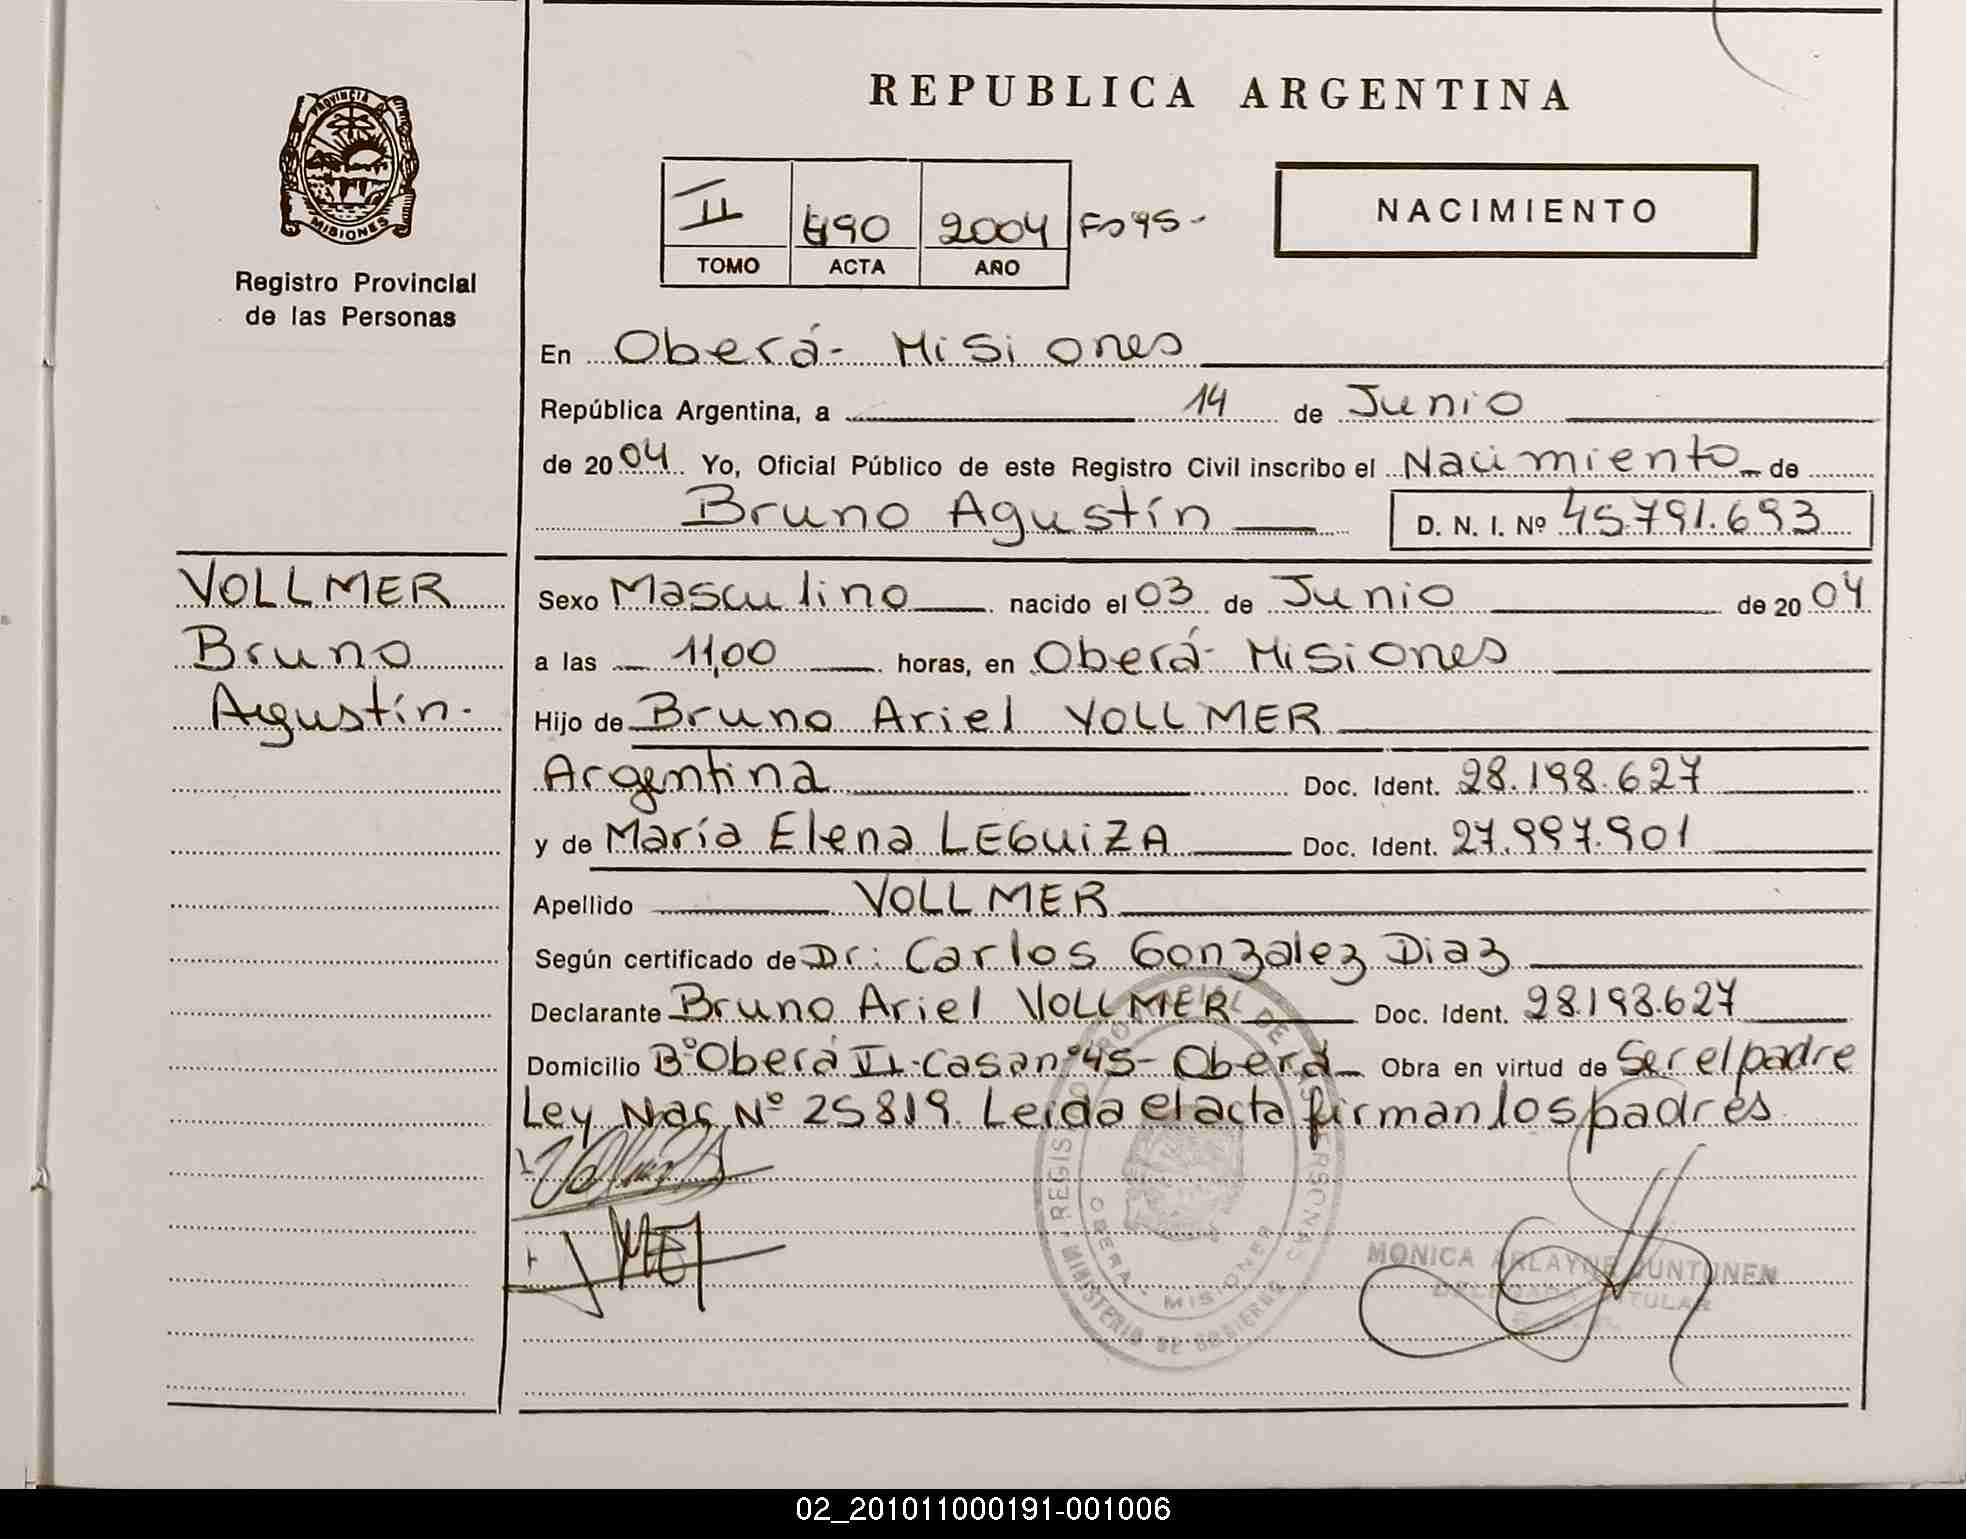 REPUBLICA ARGENTINA
PROVINCIA DE
MISIONES
Registro Provincial
de las Personas
II 490 2004 Fo 95-
TOMO ACTA AÑO
NACIMIENTO
En Oberá- Misiones
República Argentina, a 14 de Junio
de 2004 Yo, Oficial Público de este Registro Civil inscribo el Nacimiento de
Bruno Agustín D. N. I. Nº 45.791.693
VOLLMER
Bruno
Agustín.
Sexo Masculino nacido el 03 de Junio de 2004
a las 11,00 horas, en Oberá- Misiones
Hijo de Bruno Ariel VOLLMER
Argentina Doc. Ident. 28.198.627
y de María Elena LEGUIZA Doc. Ident. 27.997.901
Apellido VOLLMER
Según certificado de Dr: Carlos Gonzalez Diaz
Declarante Bruno Ariel VOLLMER Doc. Ident. 28.198.627
Domicilio Bº Oberá VI-Casa nº 45- Oberá Obra en virtud de Ser el padre
Ley Nac Nº 25819. Leida el acta firman los padres
REGISTRO PROVINCIAL DE PERSONAS
OBERA - MISIONES
MINISTERIO DE GOBIERNO
MONICA ARLAYNE JUNTUNEN
DELEGADA TITULAR
02_201011000191-001006